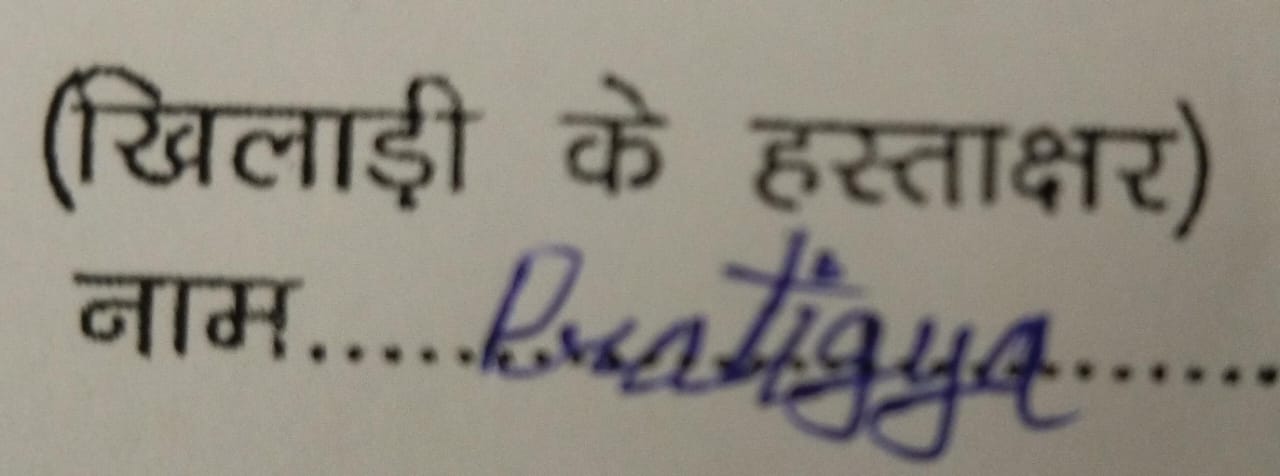 (खिलाड़ी के हस्ताक्षर)
नाम.....Pratigya.......